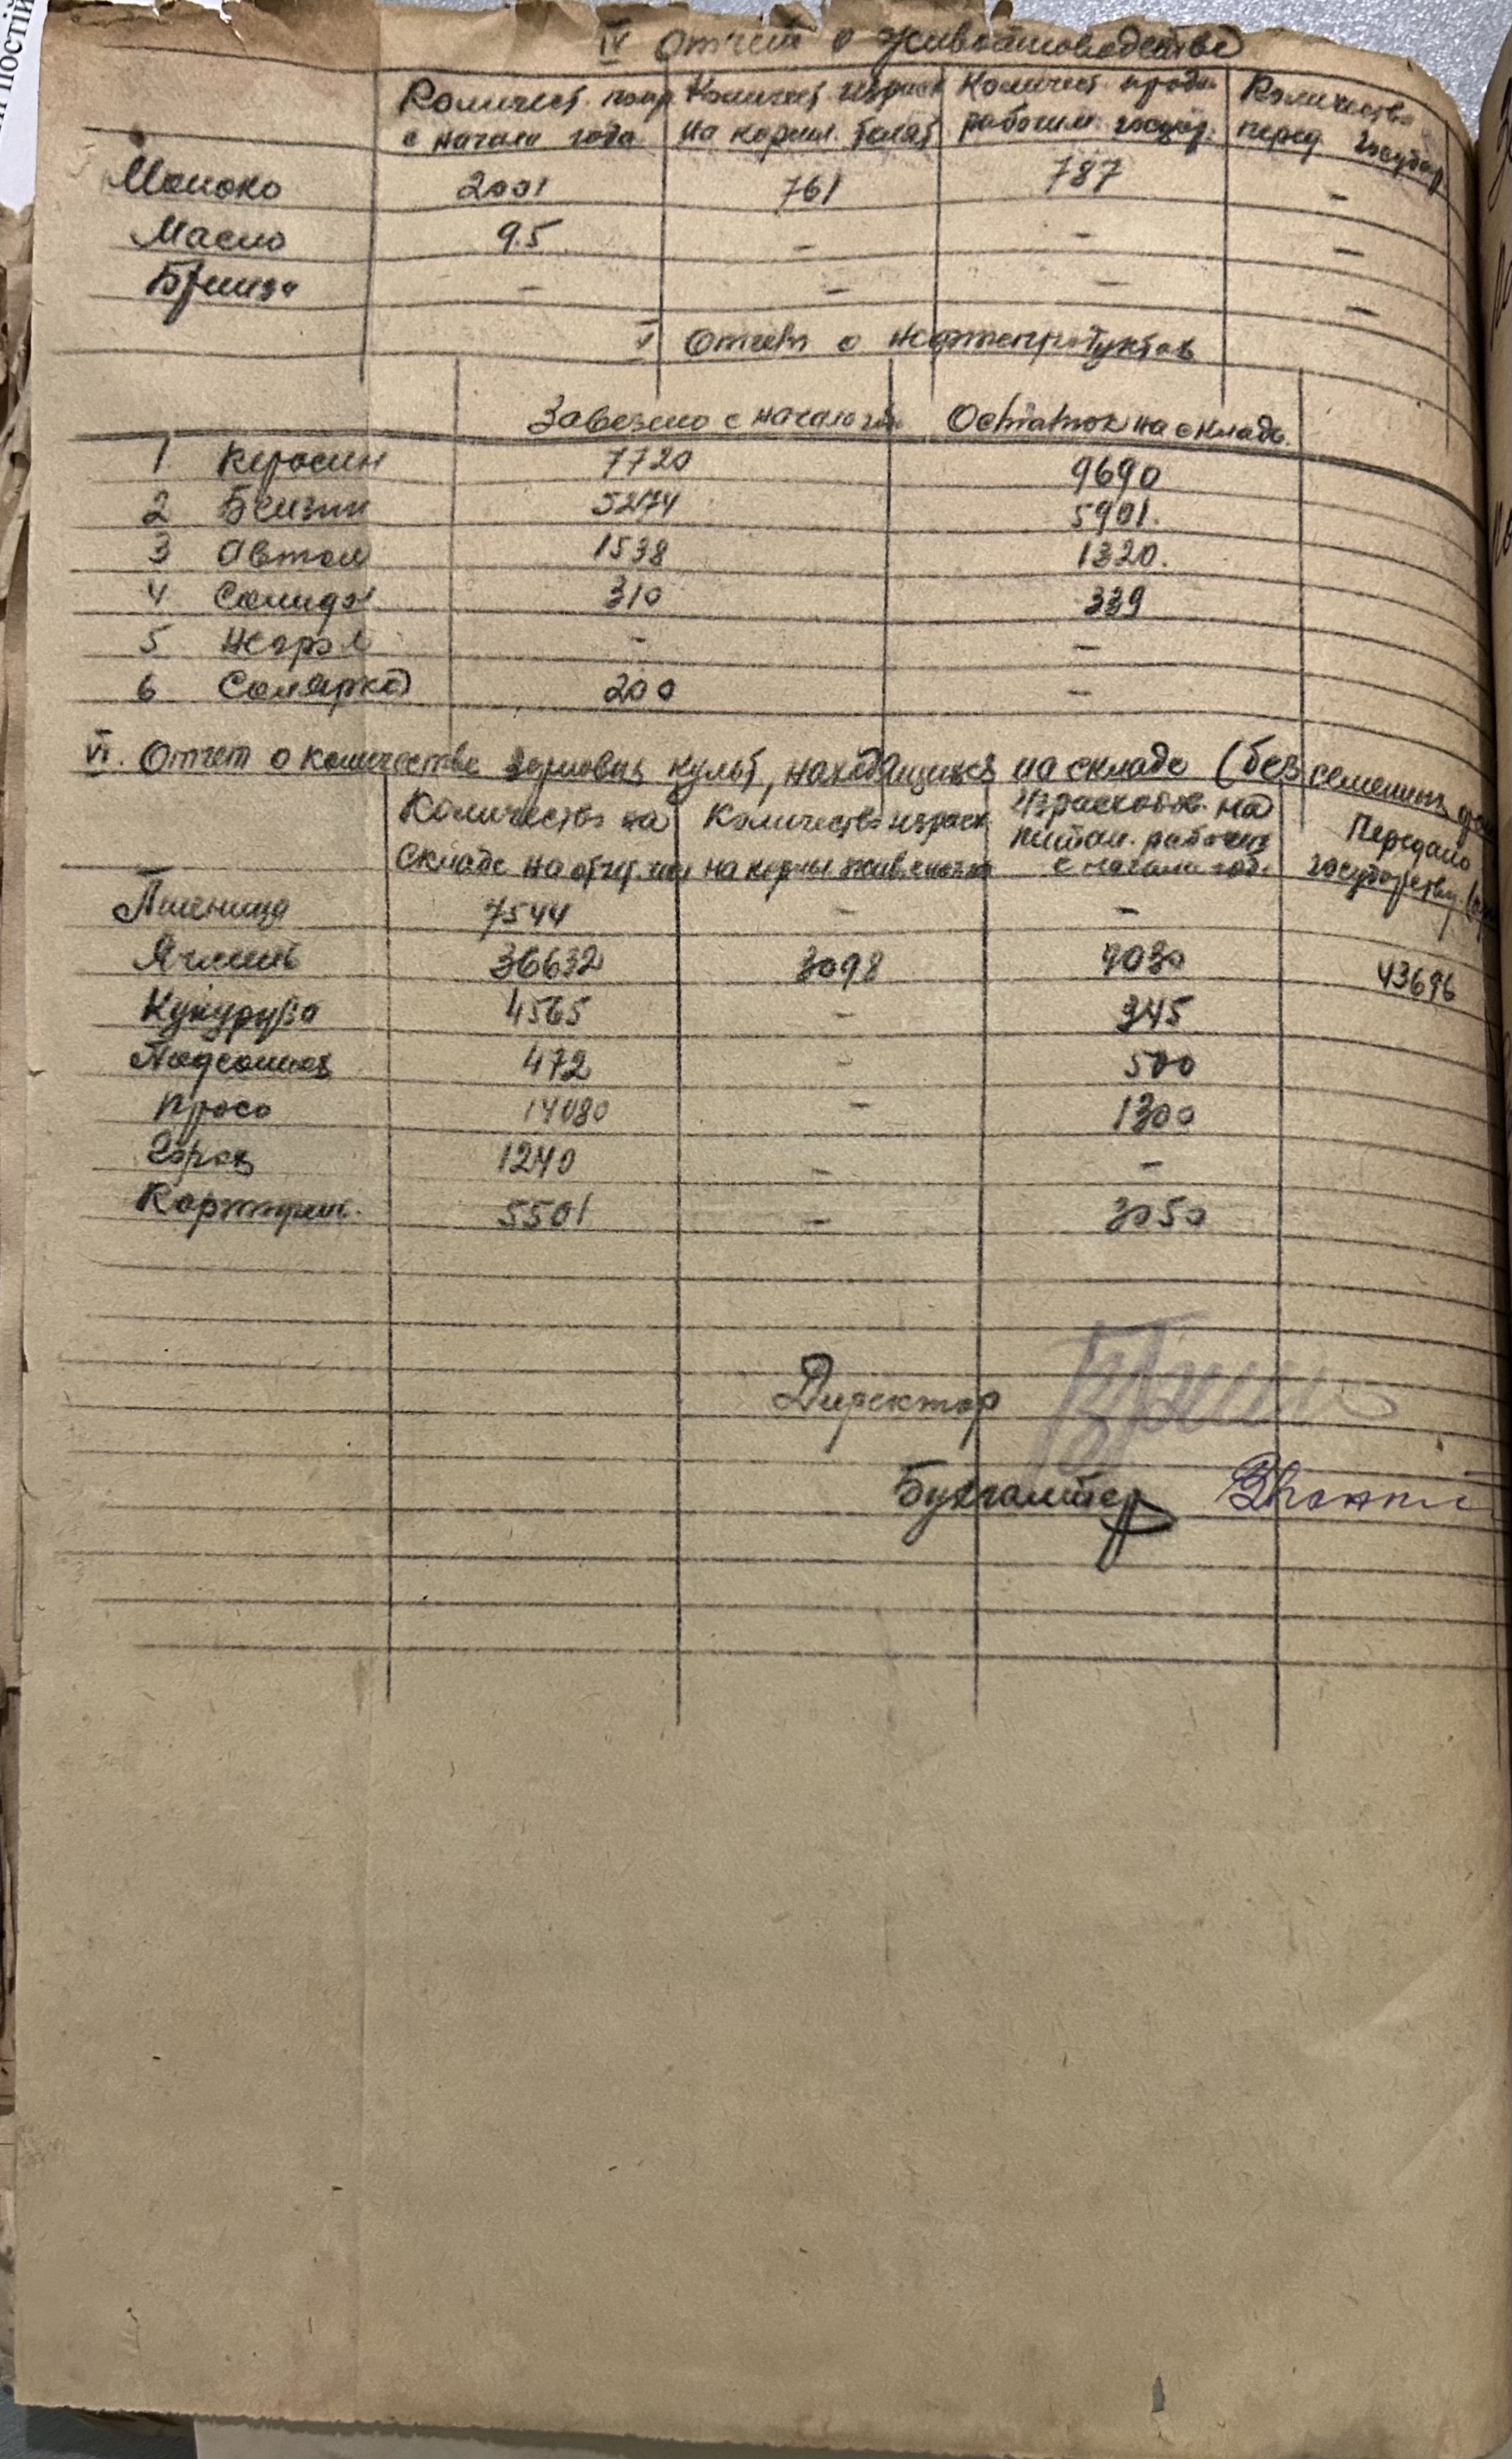 IV Отчет о животноводстве
Количест. получ. Количест. израсх. Количест. прода Количество
с начала года на кормл. телят рабочим перед. государ.
Молоко 2001 761 787 -
Масло 9.5 - - -
Брынза - - - -
V Отчет о нефтепродуктов
Завезено с начала Остаток на складе
1 Керосин 7720 9690
2 Бензин 5274 5901.
3 Автол 1538 1320.
4 Солидол 310 339
5 Нигрол - -
6 Солярка 200 -
VI. Отчет о количестве зерновых культ, находящихся на складе (без семенных
Количество на Количество израсх. Израсходов. на Передано
складе на отчет. на кормы питан. рабочих государству
с начала год.
Пшеница 7544 - -
Ячмень 36632 3098 9030 43696
Кукуруза 4565 - 345
Подсолнух 472 - 500
Просо 14080 - 1300
Горох 1240 - -
Картофель. 5501 - 3050
Директор
Бухгалтер